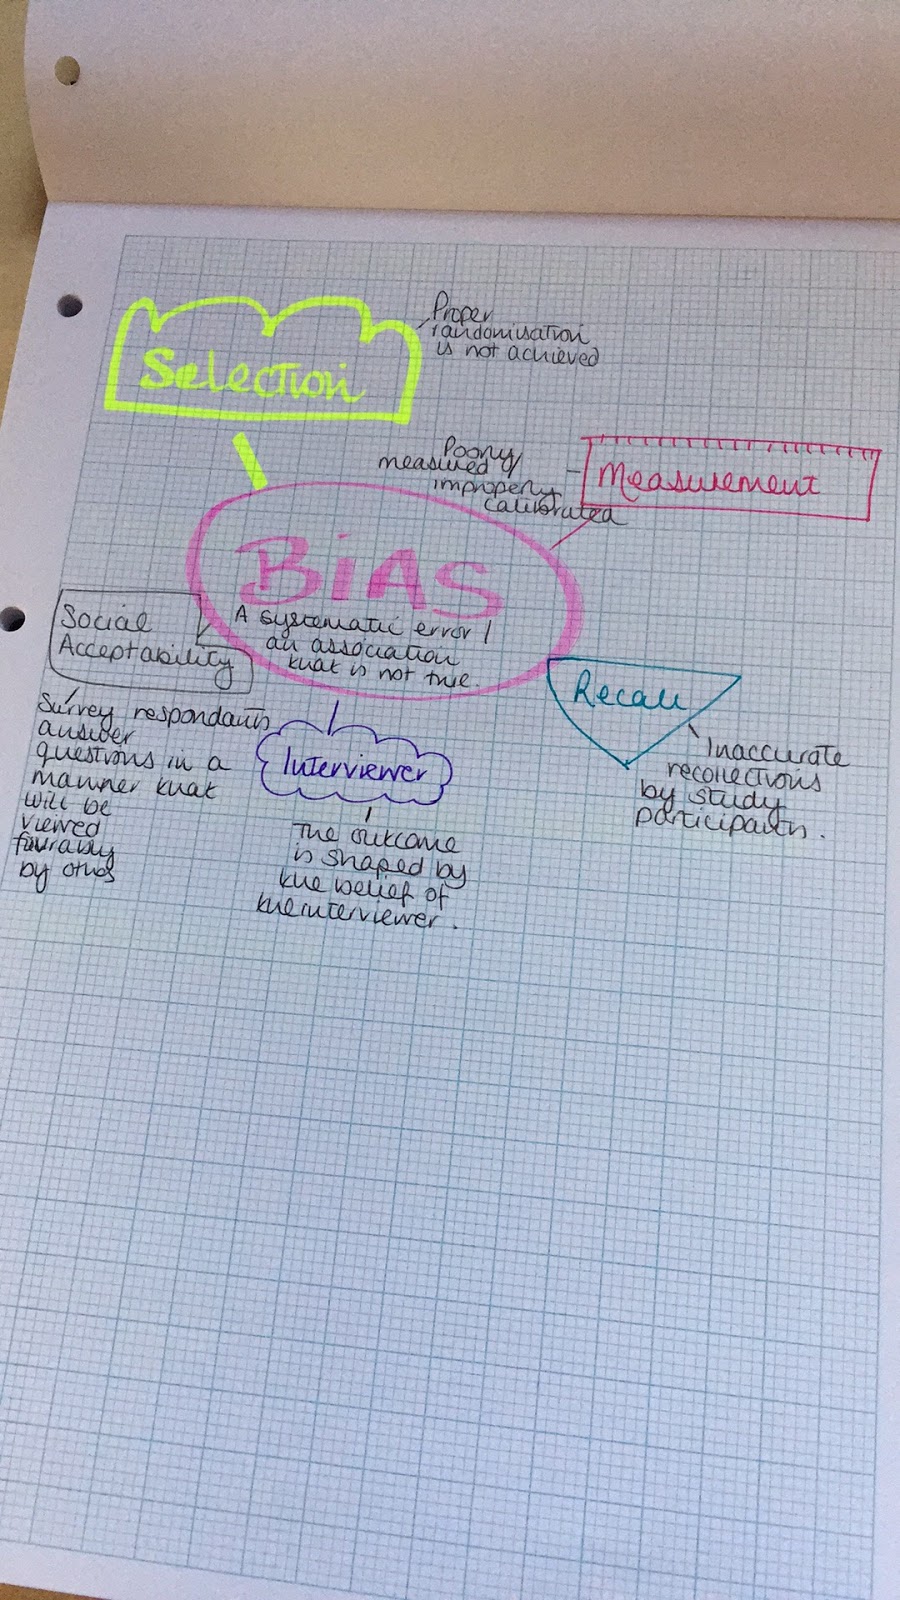 Selection
Proper
randomisation
is not achieved
Measurement
Poorly
measured/
improperly
calibrated
BIAS
A systematic error /
an association
that is not true.
Social
Acceptability
Survey respondants
answer
questions in a
manner that
will be
viewed
favourably
by others
Interviewer
The outcome
is shaped by
the belief of
the interviewer.
Recall
Inaccurate
recollections
by study
participants.